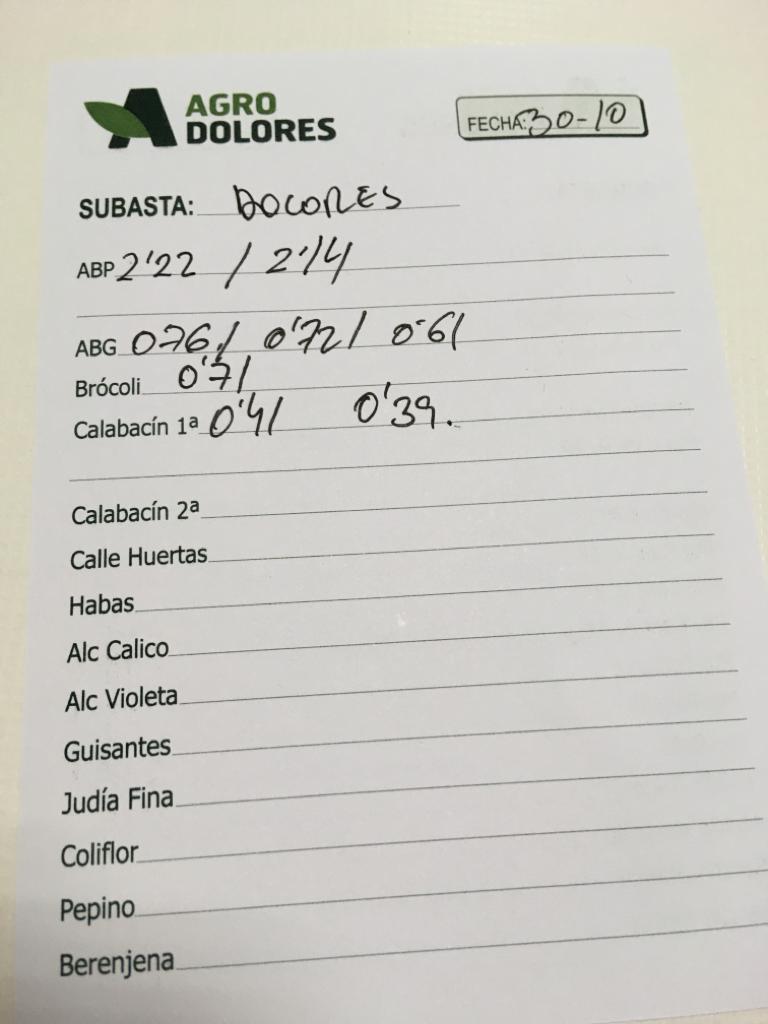 AGRO
DOLORES
FECHA: 30-10
SUBASTA: DOLORES
ABP 2'22 / 2'14
ABG 076 / 0'72 / 0'61
Brócoli 0'71
Calabacín 1ª 0'41 0'39.
Calabacín 2ª
Calle Huertas
Habas
Alc Calico
Alc Violeta
Guisantes
Judía Fina
Coliflor
Pepino
Berenjena